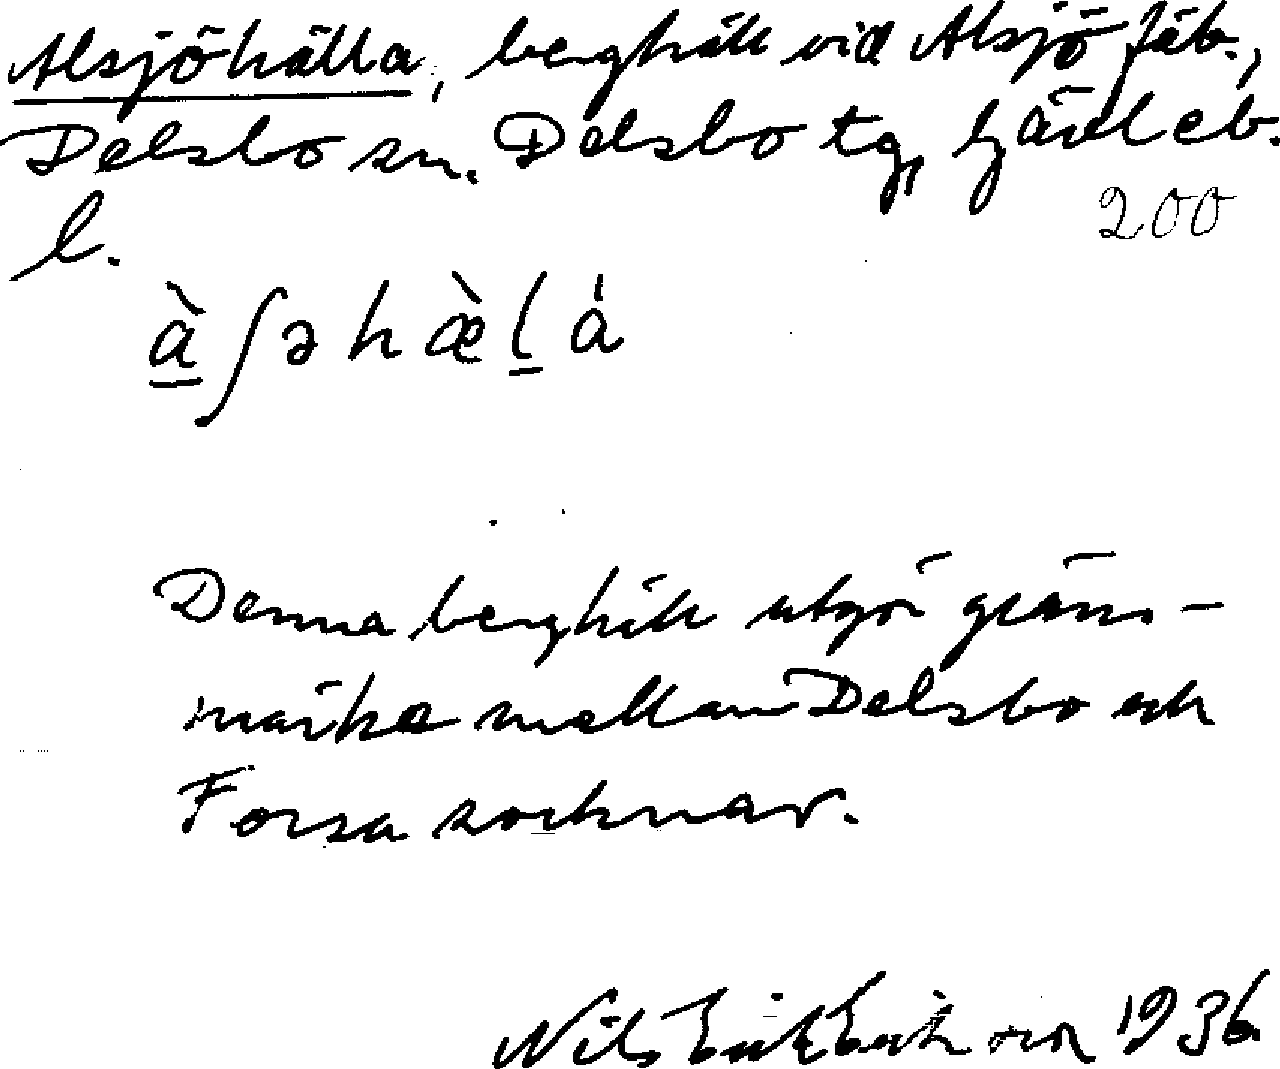 Alsjöhälla, berghäll vid Alsjö fäb.,
Delsbo sn. Delsbo tg, Gävleb.
l.
200
à̱ ʃ ə h æ̀ ḻ á
Denna berghäll utgör gräns-
märke mellan Delsbo och
Forsa socknar.
Nils Erik Eriksson 1936